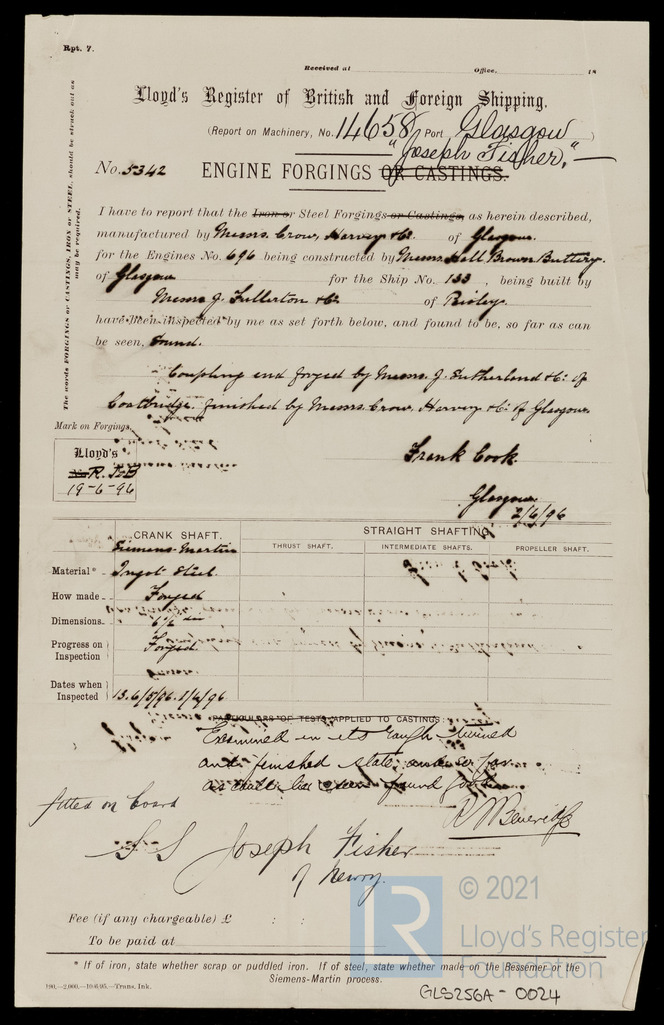 Rpt. 7.
Received at Office, 18
Lloyd's Register of British and Foreign Shipping.
(Report on Machinery, No. 14658 Port Glasgow)
"Joseph Fisher,"
No. 5342 ENGINE FORGINGS OR CASTINGS.
The words FORGINGS or CASTINGS, IRON or STEEL, should be struck out as may be required.
I have to report that the Iron or Steel Forgings or Castings, as herein described,
manufactured by Messrs. Crow, Harvey & Co. of Glasgow.
for the Engines No. 696 being constructed by Messrs Hall Brown Buttery.
of Glasgow for the Ship No. 133, being built by
Messrs J. Fullerton & Co of Paisley.
have been inspected by me as set forth below, and found to be, so far as can
be seen, sound.
Coupling end forged by Messrs. J. Sutherland & Co. of
Coatbridge. finished by Messrs. Crow, Harvey & Co. of Glasgow.
Mark on Forgings.
Lloyd's
No R.
19-6-96
Frank Cook.
Glasgow.
2/6/96
CRANK SHAFT. STRAIGHT SHAFTING.
THRUST SHAFT. INTERMEDIATE SHAFTS. PROPELLER SHAFT.
Material* Siemens-Martin
Ingot Steel.
How made Forged
Dimensions 6½ dia
Progress on Inspection Forged
Dates when Inspected 13. 6/5/96. 1/6/96
PARTICULARS OF TESTS APPLIED TO CASTINGS:
Examined in its rough turned
and finished state and so far
as could be seen found
fitted on board
S S Joseph Fisher
of Newry.
Fee (if any chargeable) £ : :
To be paid at
* If of iron, state whether scrap or puddled iron. If of steel, state whether made on the Bessemer or the
Siemens-Martin process.
190,—2,000.—10/6/95.—Trans. Ink.
GLS256A-0024
LR
© 2021
Lloyd's Register
Foundation